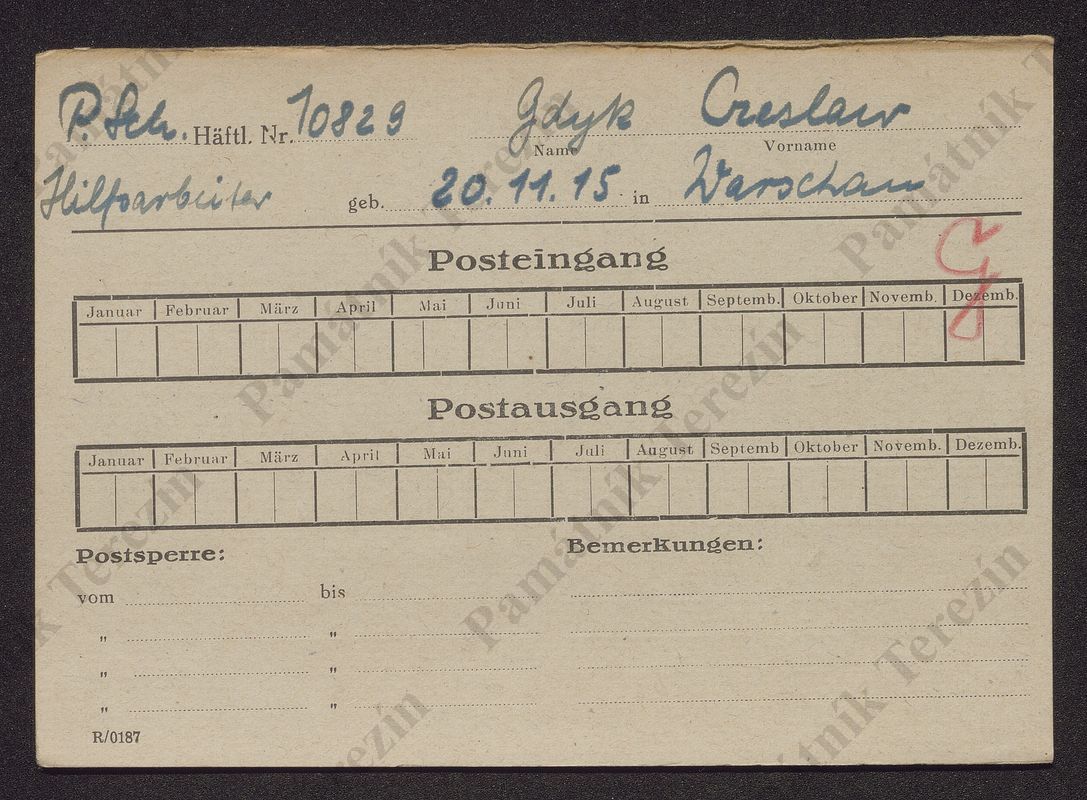 P. Sch. Häftl. Nr. 10829 Gdyk Czeslaw
Name Vorname
Hilfsarbeiter geb. 20.11.15 in Warschau
G
Posteingang
Januar Februar März April Mai Juni Juli August Septemb. Oktober Novemb. Dezemb.
Postausgang
Januar Februar März April Mai Juni Juli August Septemb Oktober Novemb. Dezemb.
Postsperre: Bemerkungen:
vom bis
„ „
„ „
„ „
R/0187
Památník Terezín